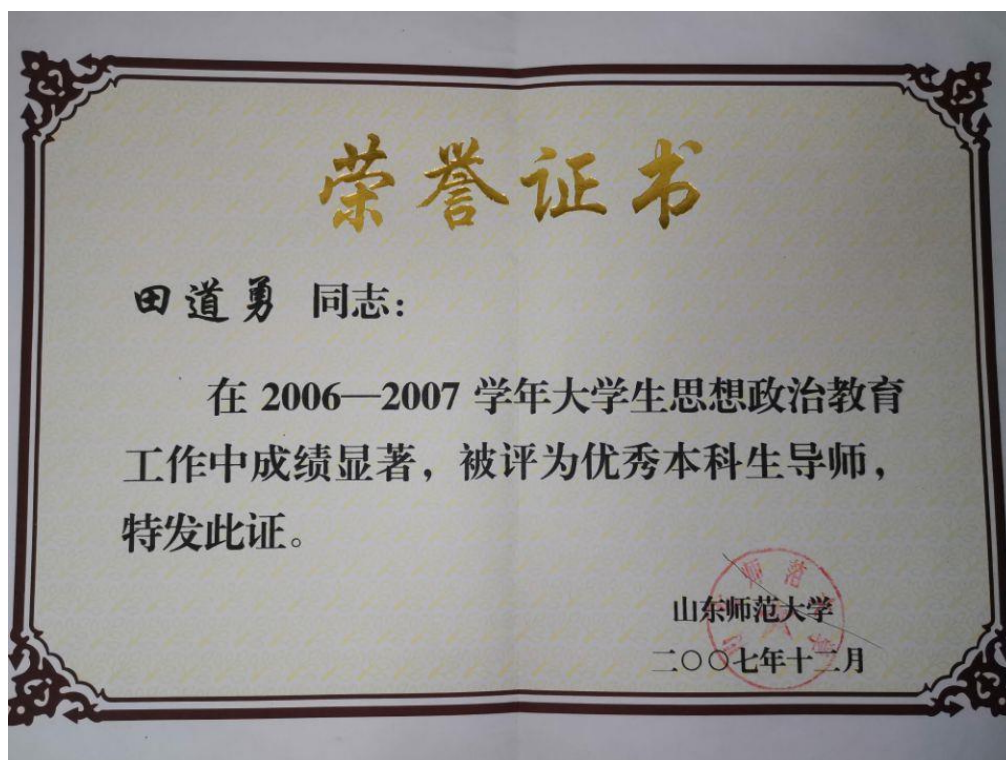 荣誉证书
田道勇 同志：
在 2006—2007 学年大学生思想政治教育
工作中成绩显著，被评为优秀本科生导师，
特发此证。
山东师范大学
二〇〇七年十二月